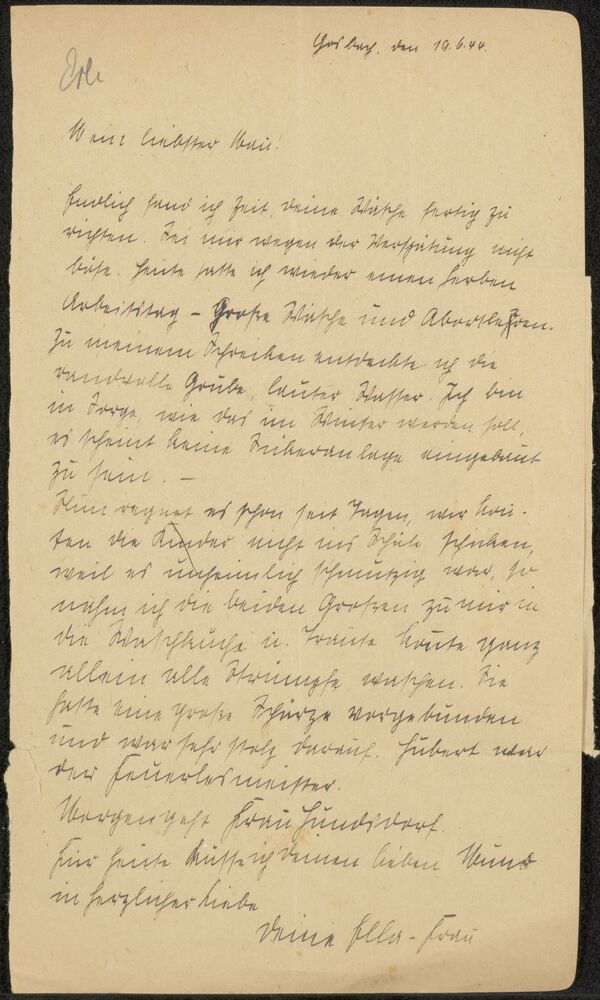 Gosbach, den 19.6.44.
Mein liebster Mau!
Endlich fand ich Zeit, deine Wäsche fertig zu
richten. Sei mir wegen der Verspätung nicht
böse. Heute hatte ich wieder einen herben
Arbeitstag – Große Wäsche und Abortleeren.
Zu meinem Schrecken entdeckte ich die
randvolle Grube, lauter Wasser. Ich bin
in Sorge, wie das im Winter werden soll,
es scheint keine Sickeranlage eingebaut
zu sein. –
Nun regnet es schon seit Tagen, wir konn-
ten die Kinder nicht ins Schule schicken,
weil es unheimlich schmutzig war, so
nahm ich die beiden Großen zu mir in
die Waschküche u. Traute konnte ganz
allein alle Strümpfe waschen. Sie
hatte eine große Schürze vorgebunden
und war sehr stolz darauf. Hubert war
der Feuerlesmeister.
Morgen geht Frau Hundsdorf.
Für heute küsse ich deinen lieben Mund
in herzlicher Liebe
Deine Ella-Frau